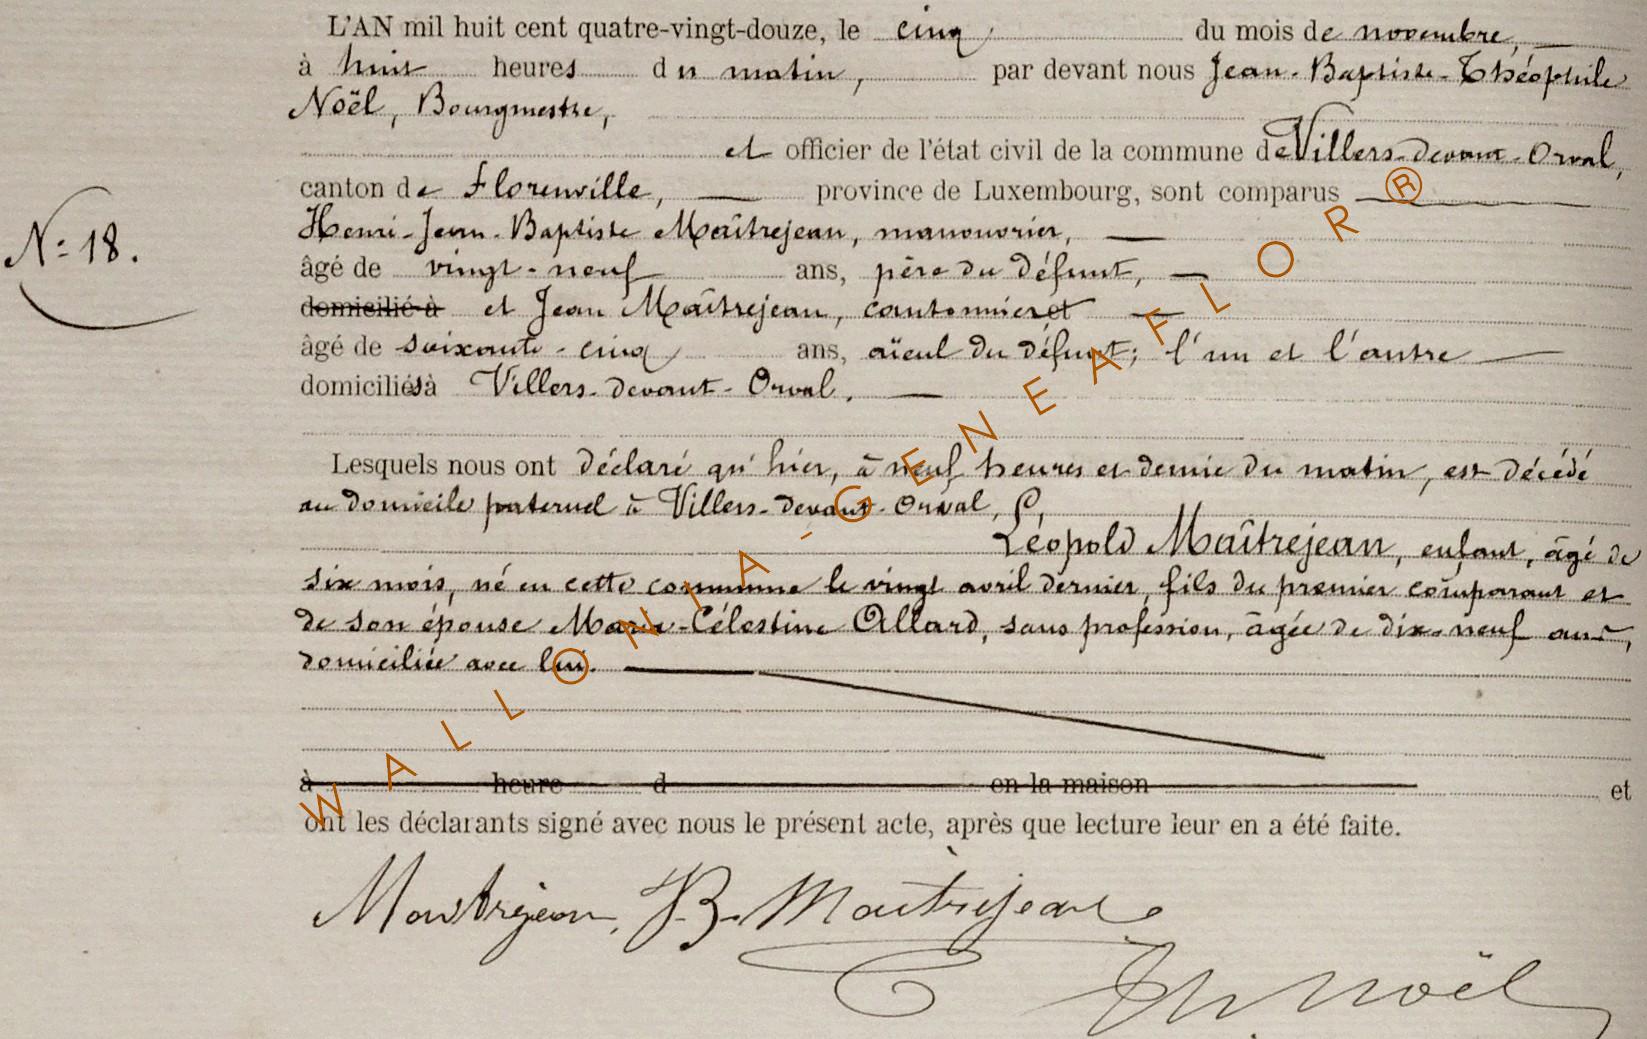 L'AN mil huit cent quatre-vingt-douze, le cinq du mois de novembre,
à huit heures du matin, par devant nous Jean-Baptiste-Théophile
Noël, Bourgmestre,
et officier de l'état civil de la commune de Villers-devant-Orval,
canton de Florenville, province de Luxembourg, sont comparus
Henri-Jean-Baptiste Maîtrejean, manouvrier,
N: 18.
âgé de vingt-neuf ans, père du défunt,
domicilié à et Jean Maîtrejean, cantonnier et
âgé de soixante-cinq ans, aïeul du défunt; l'un et l'autre
domiciliés à Villers-devant-Orval.
Lesquels nous ont déclaré qu'hier, à neuf heures et demie du matin, est décédé
au domicile paternel à Villers-devant-Orval,
Léopold Maîtrejean, enfant, âgé de
six mois, né en cette commune le vingt avril dernier, fils du premier comparant et
de son épouse Maria-Célestine Allard, sans profession, âgée de dix-neuf ans,
domiciliée avec lui.
à heure d en la maison et
ont les déclarants signé avec nous le présent acte, après que lecture leur en a été faite.
Maitrejean, J.B. Maitrejean
Th Noël
WALLONIA-GENEAFLOR®